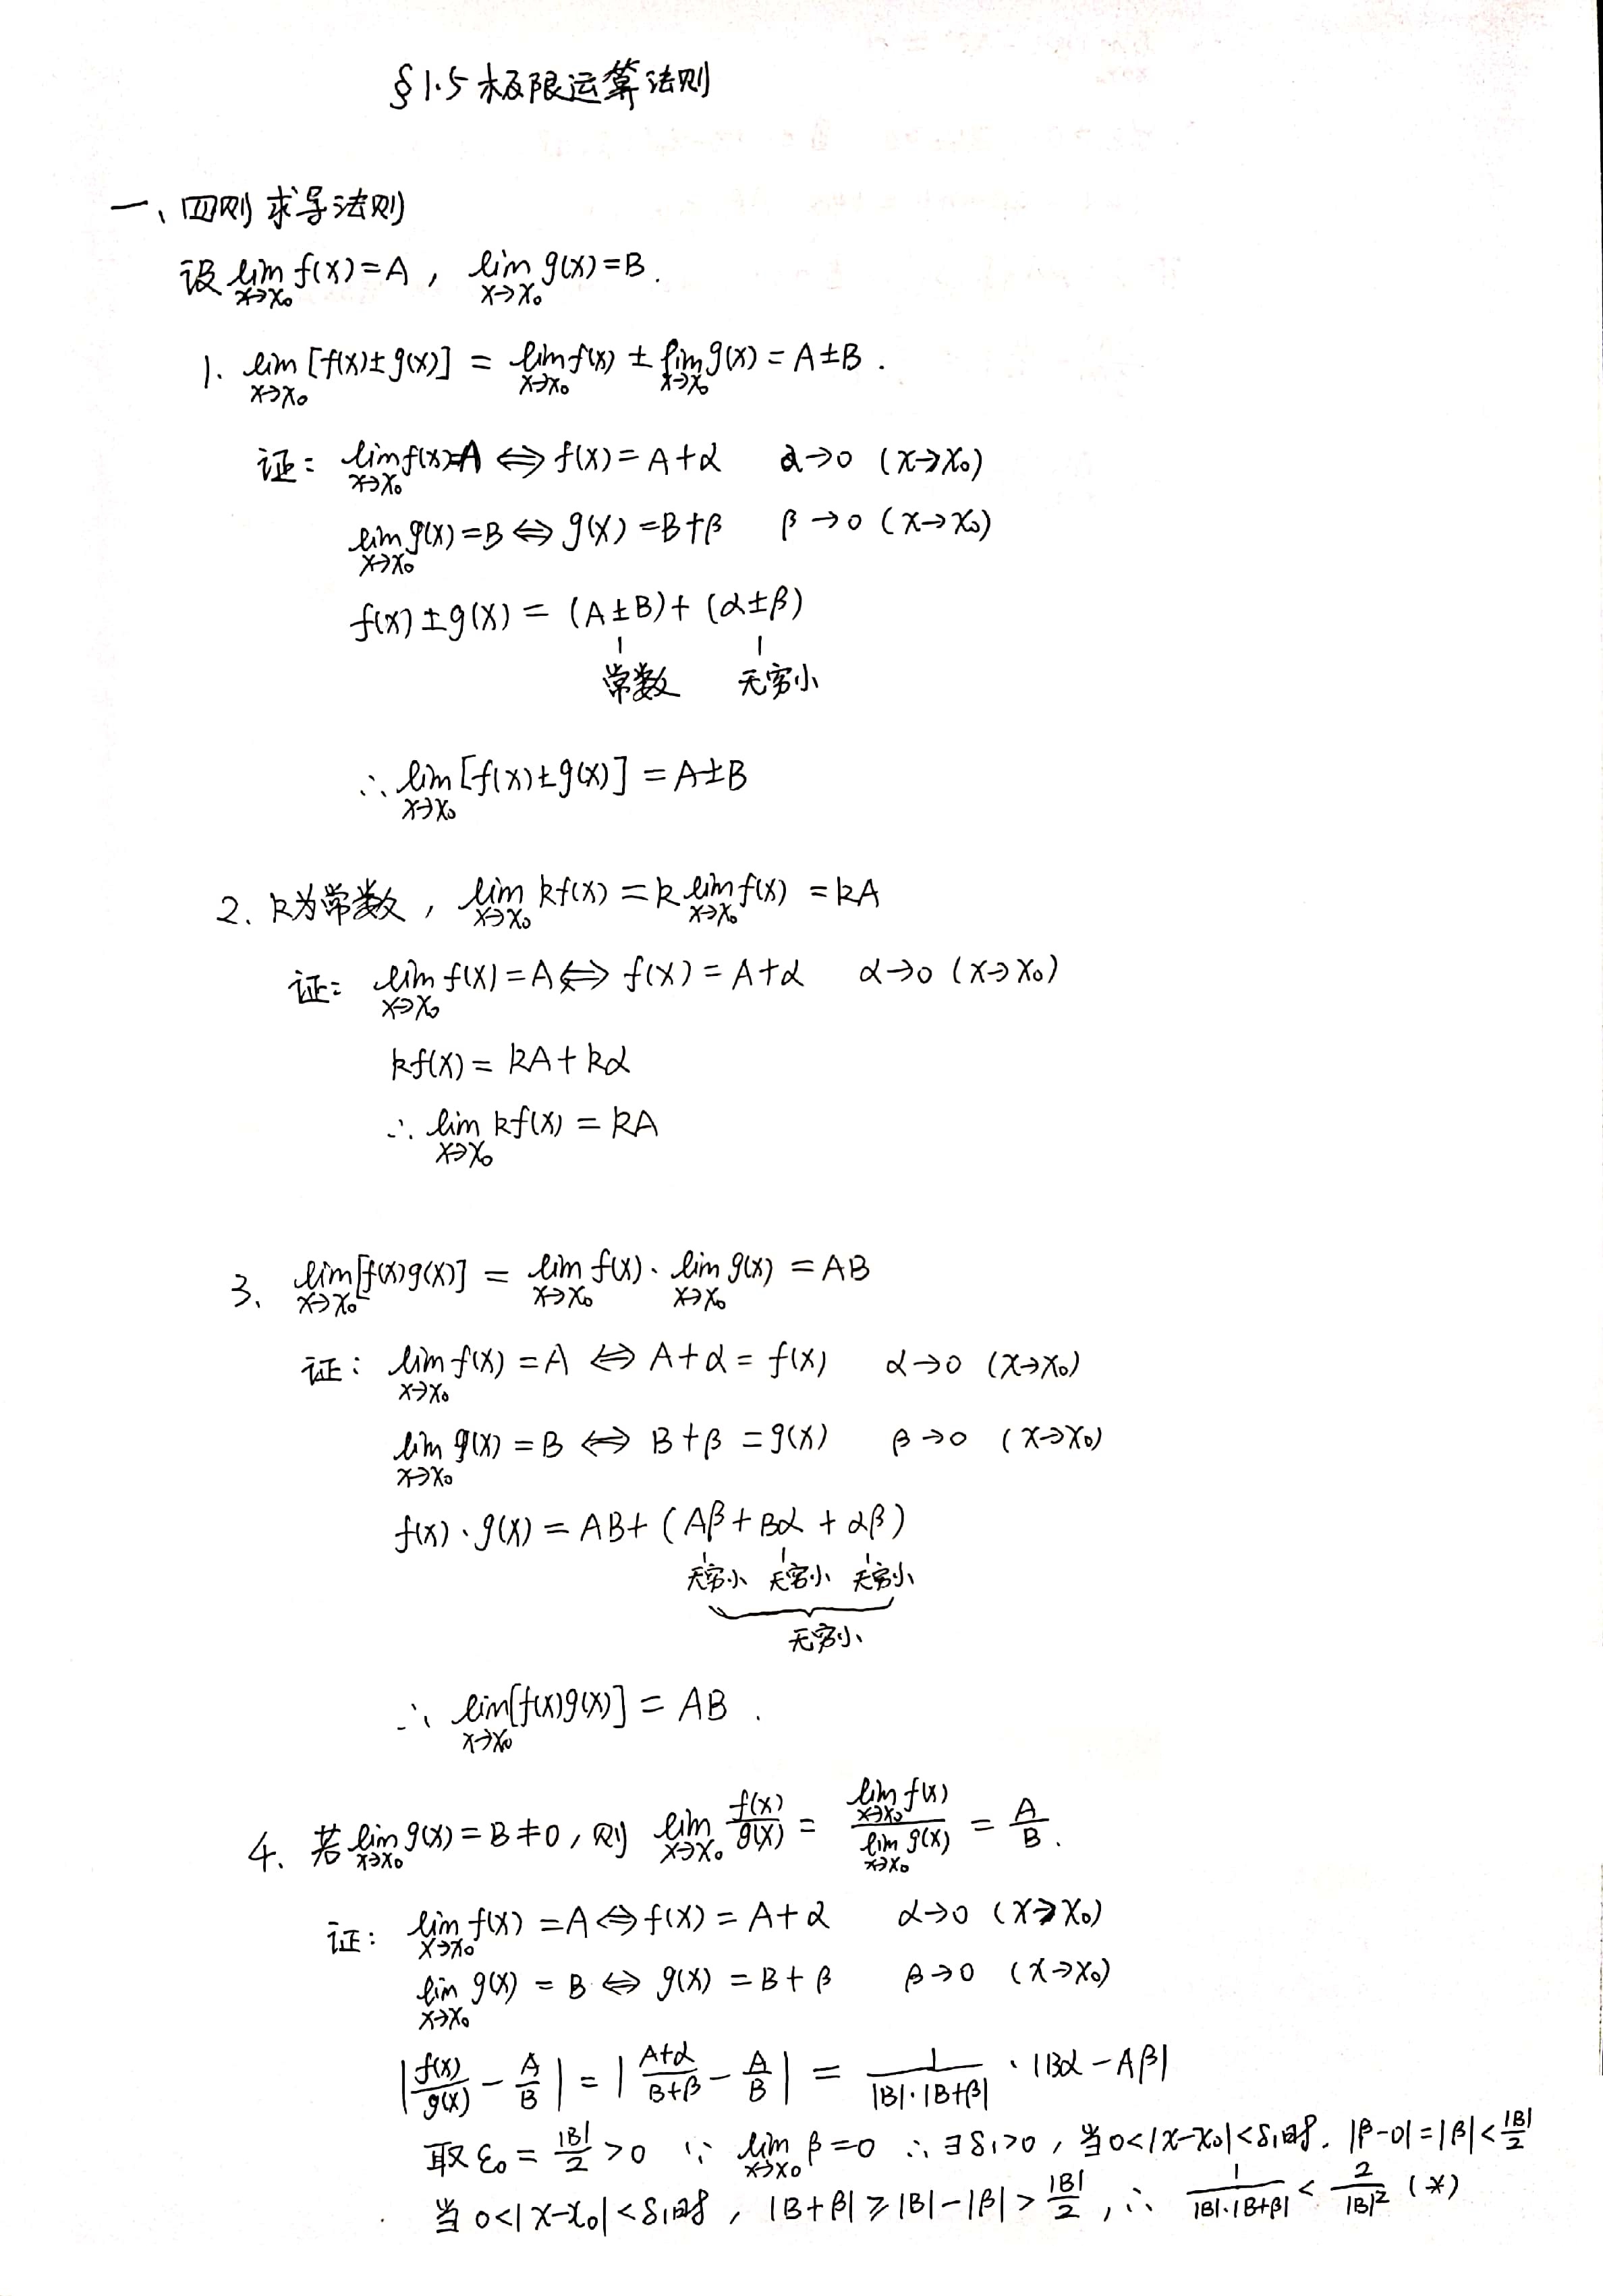 §1.5 极限运算法则
一、四则求导法则
设 lim_{x→x₀} f(x)=A , lim_{x→x₀} g(x)=B .
1. lim_{x→x₀} [f(x)±g(x)] = lim_{x→x₀} f(x) ± lim_{x→x₀} g(x) = A±B .
证: lim_{x→x₀} f(x)=A ⇔ f(x)=A+α α→0 (x→x₀)
lim_{x→x₀} g(x)=B ⇔ g(x)=B+β β→0 (x→x₀)
f(x)±g(x) = (A±B)+(α±β)
常数 无穷小
∴ lim_{x→x₀} [f(x)±g(x)] = A±B
2. k为常数, lim_{x→x₀} kf(x) = k lim_{x→x₀} f(x) = kA
证: lim_{x→x₀} f(x)=A ⇔ f(x)=A+α α→0 (x→x₀)
kf(x) = kA+kα
∴ lim_{x→x₀} kf(x) = kA
3. lim_{x→x₀} [f(x)g(x)] = lim_{x→x₀} f(x) · lim_{x→x₀} g(x) = AB
证: lim_{x→x₀} f(x)=A ⇔ A+α=f(x) α→0 (x→x₀)
lim_{x→x₀} g(x)=B ⇔ B+β=g(x) β→0 (x→x₀)
f(x)·g(x) = AB+(Aβ+Bα+αβ)
无穷小 无穷小 无穷小
无穷小
∴ lim_{x→x₀} [f(x)g(x)] = AB .
4. 若 lim_{x→x₀} g(x)=B≠0, 则 lim_{x→x₀} f(x)/g(x) = lim_{x→x₀} f(x) / lim_{x→x₀} g(x) = A/B .
证: lim_{x→x₀} f(x)=A ⇔ f(x)=A+α α→0 (x→x₀)
lim_{x→x₀} g(x)=B ⇔ g(x)=B+β β→0 (x→x₀)
|f(x)/g(x) - A/B| = |(A+α)/(B+β) - A/B| = 1/(|B|·|B+β|) · |Bα-Aβ|
取 ε₀=|B|/2>0 ∵ lim_{x→x₀} β=0 ∴ ∃δ₁>0, 当0<|x-x₀|<δ₁时. |β-0|=|β|<|B|/2
当 0<|x-x₀|<δ₁时, |B+β|≥|B|-|β|>|B|/2, ∴ 1/(|B|·|B+β|) < 2/|B|² (*)